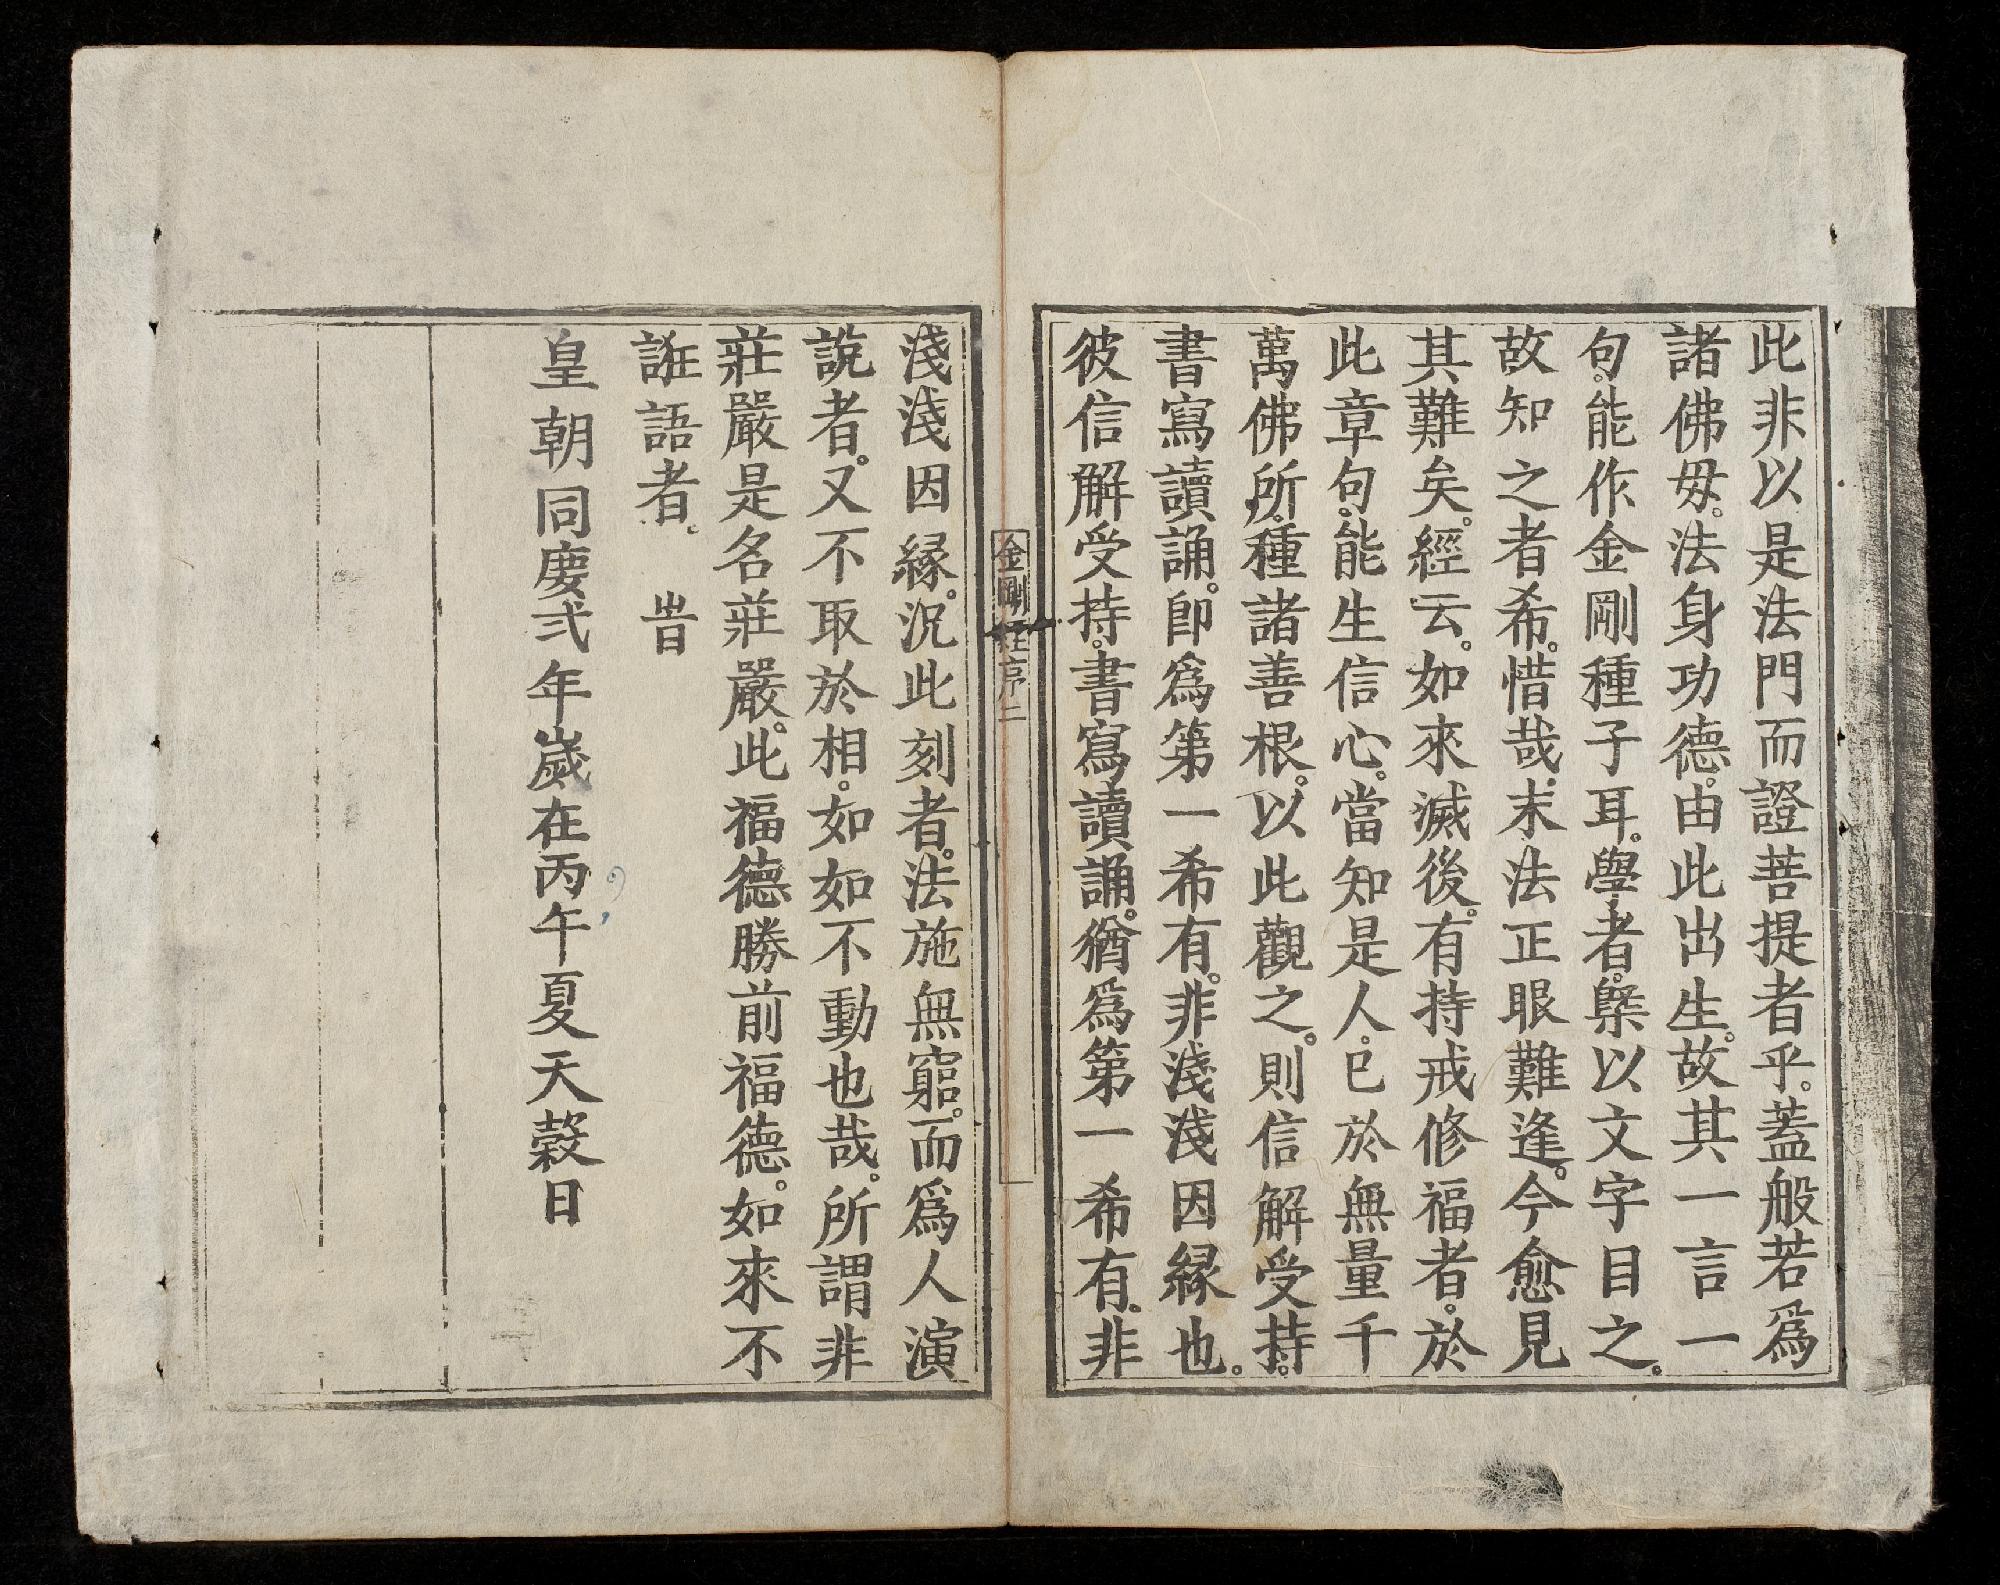 此非以是法門而證菩提者乎。蓋般若爲
諸佛母。法身功德。由此出生。故其一言一
句。能作金剛種子耳。學者。槩以文字目之。
故知之者希。惜哉。末法正眼難逢。今愈見
其難矣。經云。如來滅後。有持戒修福者。於
此章句。能生信心。當知是人。已於無量千
萬佛所。種諸善根。以此觀之。則信解受持。
書寫讀誦。即爲第一希有。非淺淺因縁也。
彼信解受持。書寫讀誦。猶爲第一希有。非
金剛經序 二
淺淺因縁。況此刻者。法施無窮。而爲人演
說者。又不取於相。如如不動也哉。所謂非
莊嚴是名莊嚴。此福德勝前福德。如來不
誑語者。 旹
皇朝同慶弍年歲在丙午夏天穀日